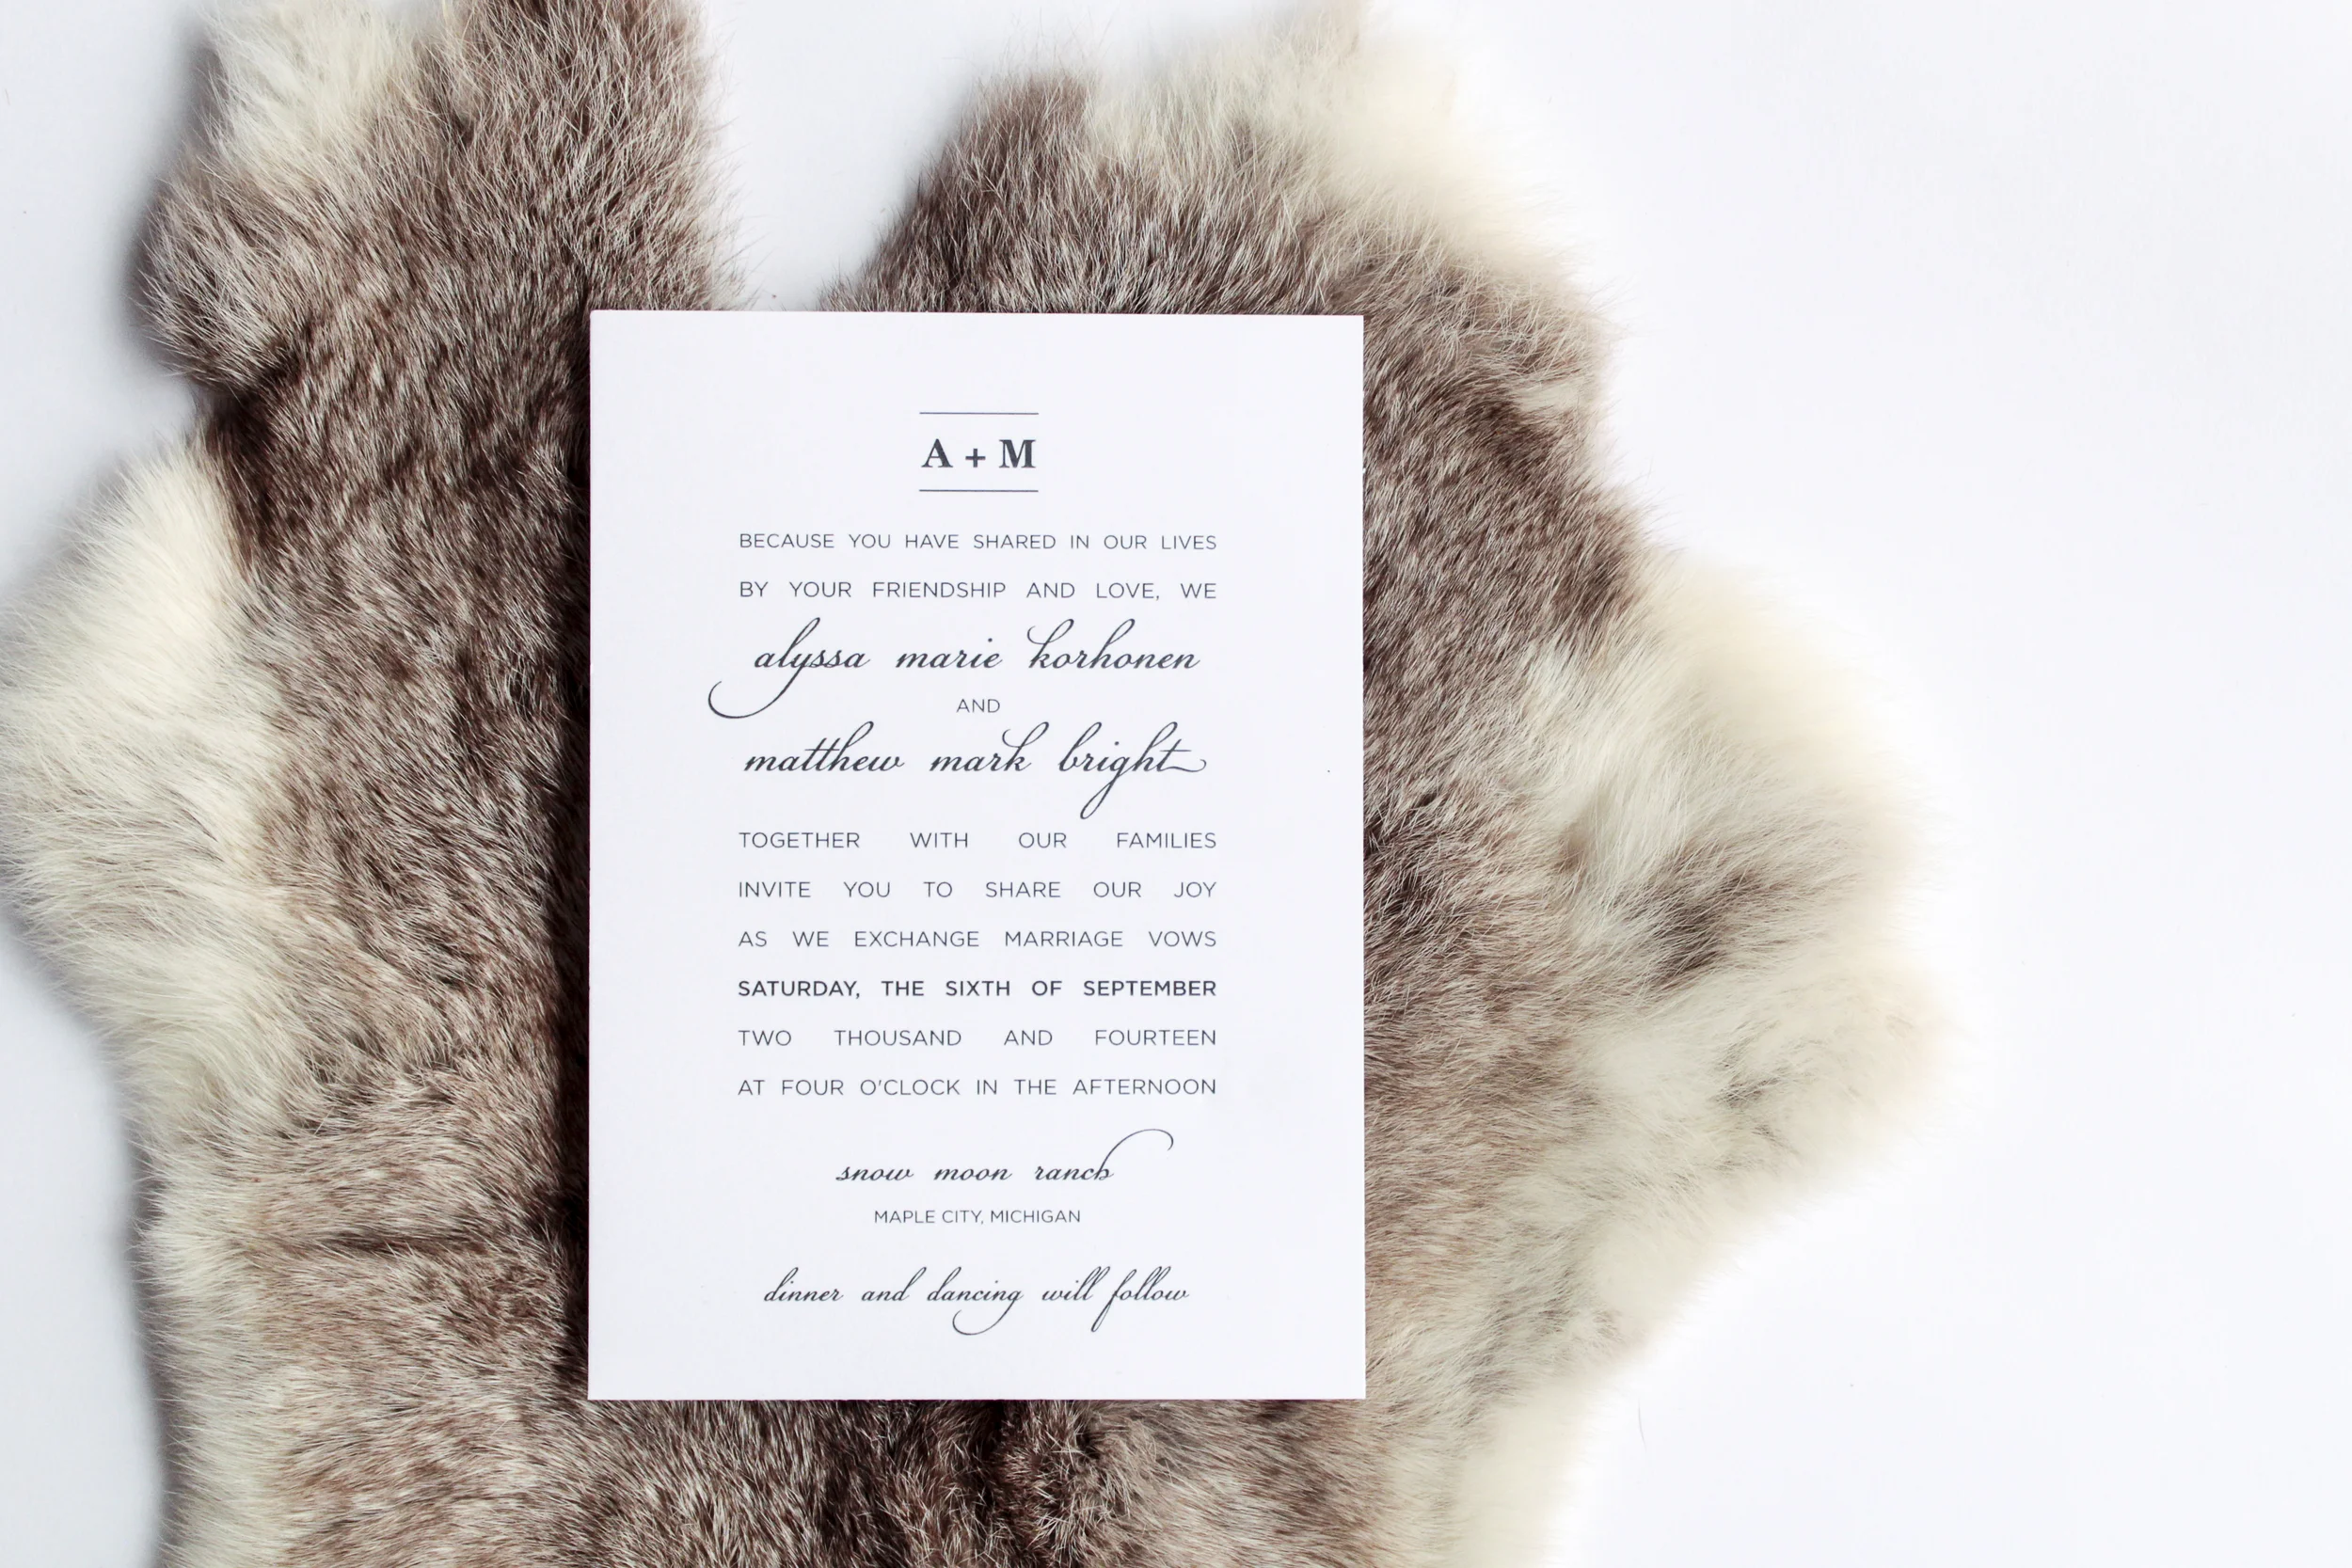 A + M
BECAUSE YOU HAVE SHARED IN OUR LIVES
BY YOUR FRIENDSHIP AND LOVE, WE
alyssa marie korhonen
AND
matthew mark bright
TOGETHER WITH OUR FAMILIES
INVITE YOU TO SHARE OUR JOY
AS WE EXCHANGE MARRIAGE VOWS
SATURDAY, THE SIXTH OF SEPTEMBER
TWO THOUSAND AND FOURTEEN
AT FOUR O'CLOCK IN THE AFTERNOON
snow moon ranch
MAPLE CITY, MICHIGAN
dinner and dancing will follow